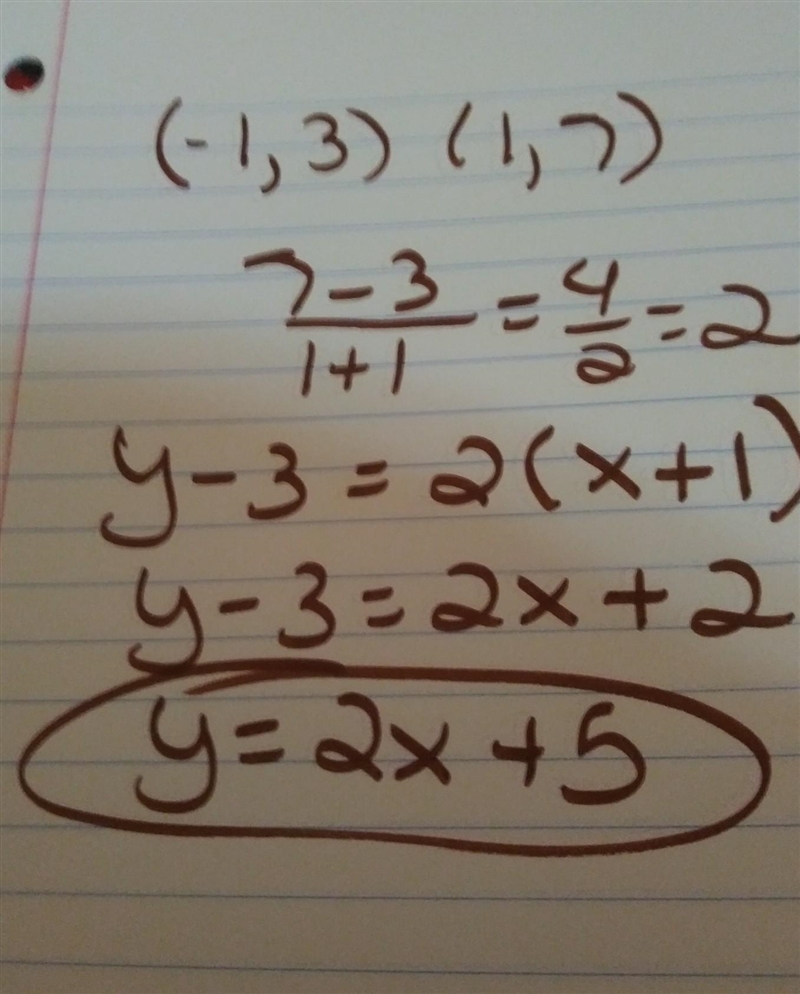 (-1, 3) (1, 7)
7 - 3 / 1 + 1 = 4 / 2 = 2
y - 3 = 2(x + 1)
y - 3 = 2x + 2
y = 2x + 5